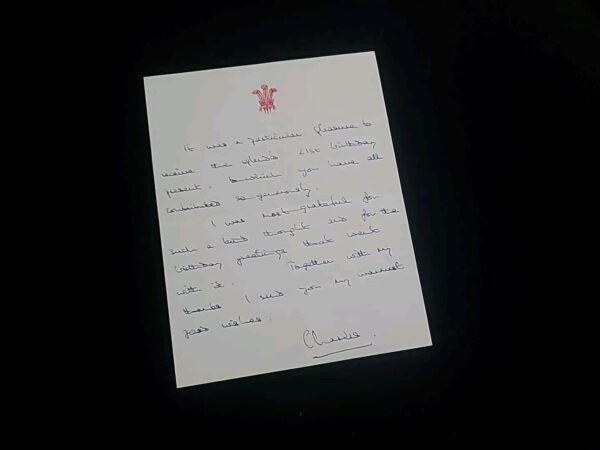 It was a particular pleasure to
receive the splendid 21st birthday
present to which you have all
contributed so generously.
I was most grateful for
such a kind thought and for the
birthday greetings that went
with it. Together with my
thanks I send you my warmest
good wishes.
Charles.